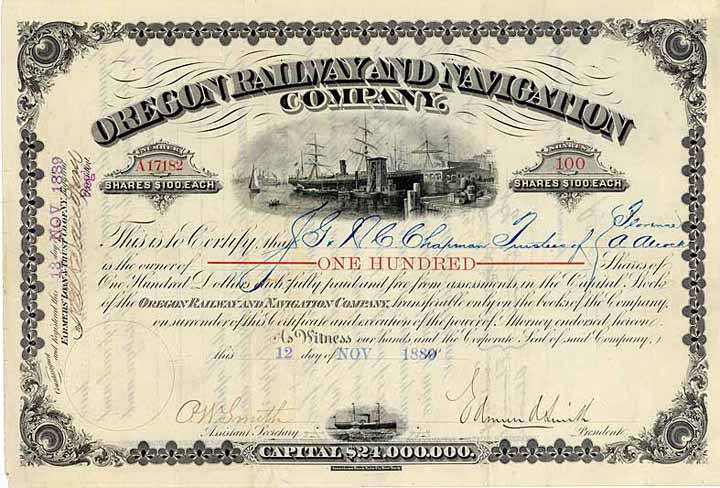 OREGON RAILWAY AND NAVIGATION
COMPANY.
NUMBER
A17182
SHARES $100. EACH
SHARES
100
SHARES $100. EACH
This is to Certify, that J. G. & R. C. Chapman Trustees of Florence A. Alcock
is the owner of ONE HUNDRED Shares of
One Hundred Dollars each, fully paid and free from assessments, in the Capital Stock
of the OREGON RAILWAY AND NAVIGATION COMPANY, transferable only on the books of the Company,
on surrender of this Certificate and execution of the power of Attorney endorsed hereon.
As Witness our hands and the Corporate Seal of said Company,
this 12 day of NOV 1889
Assistant Secretary
President
CAPITAL $24,000,000.
Countersigned and Registered this 13 day of NOV 1889
FARMERS LOAN & TRUST CO. OF N.Y.